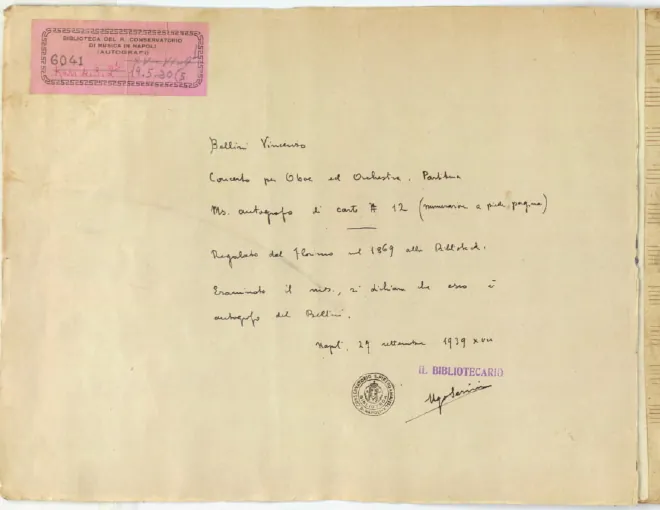 BIBLIOTECA DEL R. CONSERVATORIO
DI MUSICA IN NAPOLI
(AUTOGRAFI)
6041
Rari
Bellini Vincenzo
Concerto per Oboe ed Orchestra. Partitura
Ms. autografo di carte # 12 (numerazione a piede pagina)
Regalato dal Florimo nel 1869 alla Bibliotek.
Esaminato il ms., si dichiara che esso è
autografo del Bellini.
Napoli, 29 settembre 1939 XVII
IL BIBLIOTECARIO